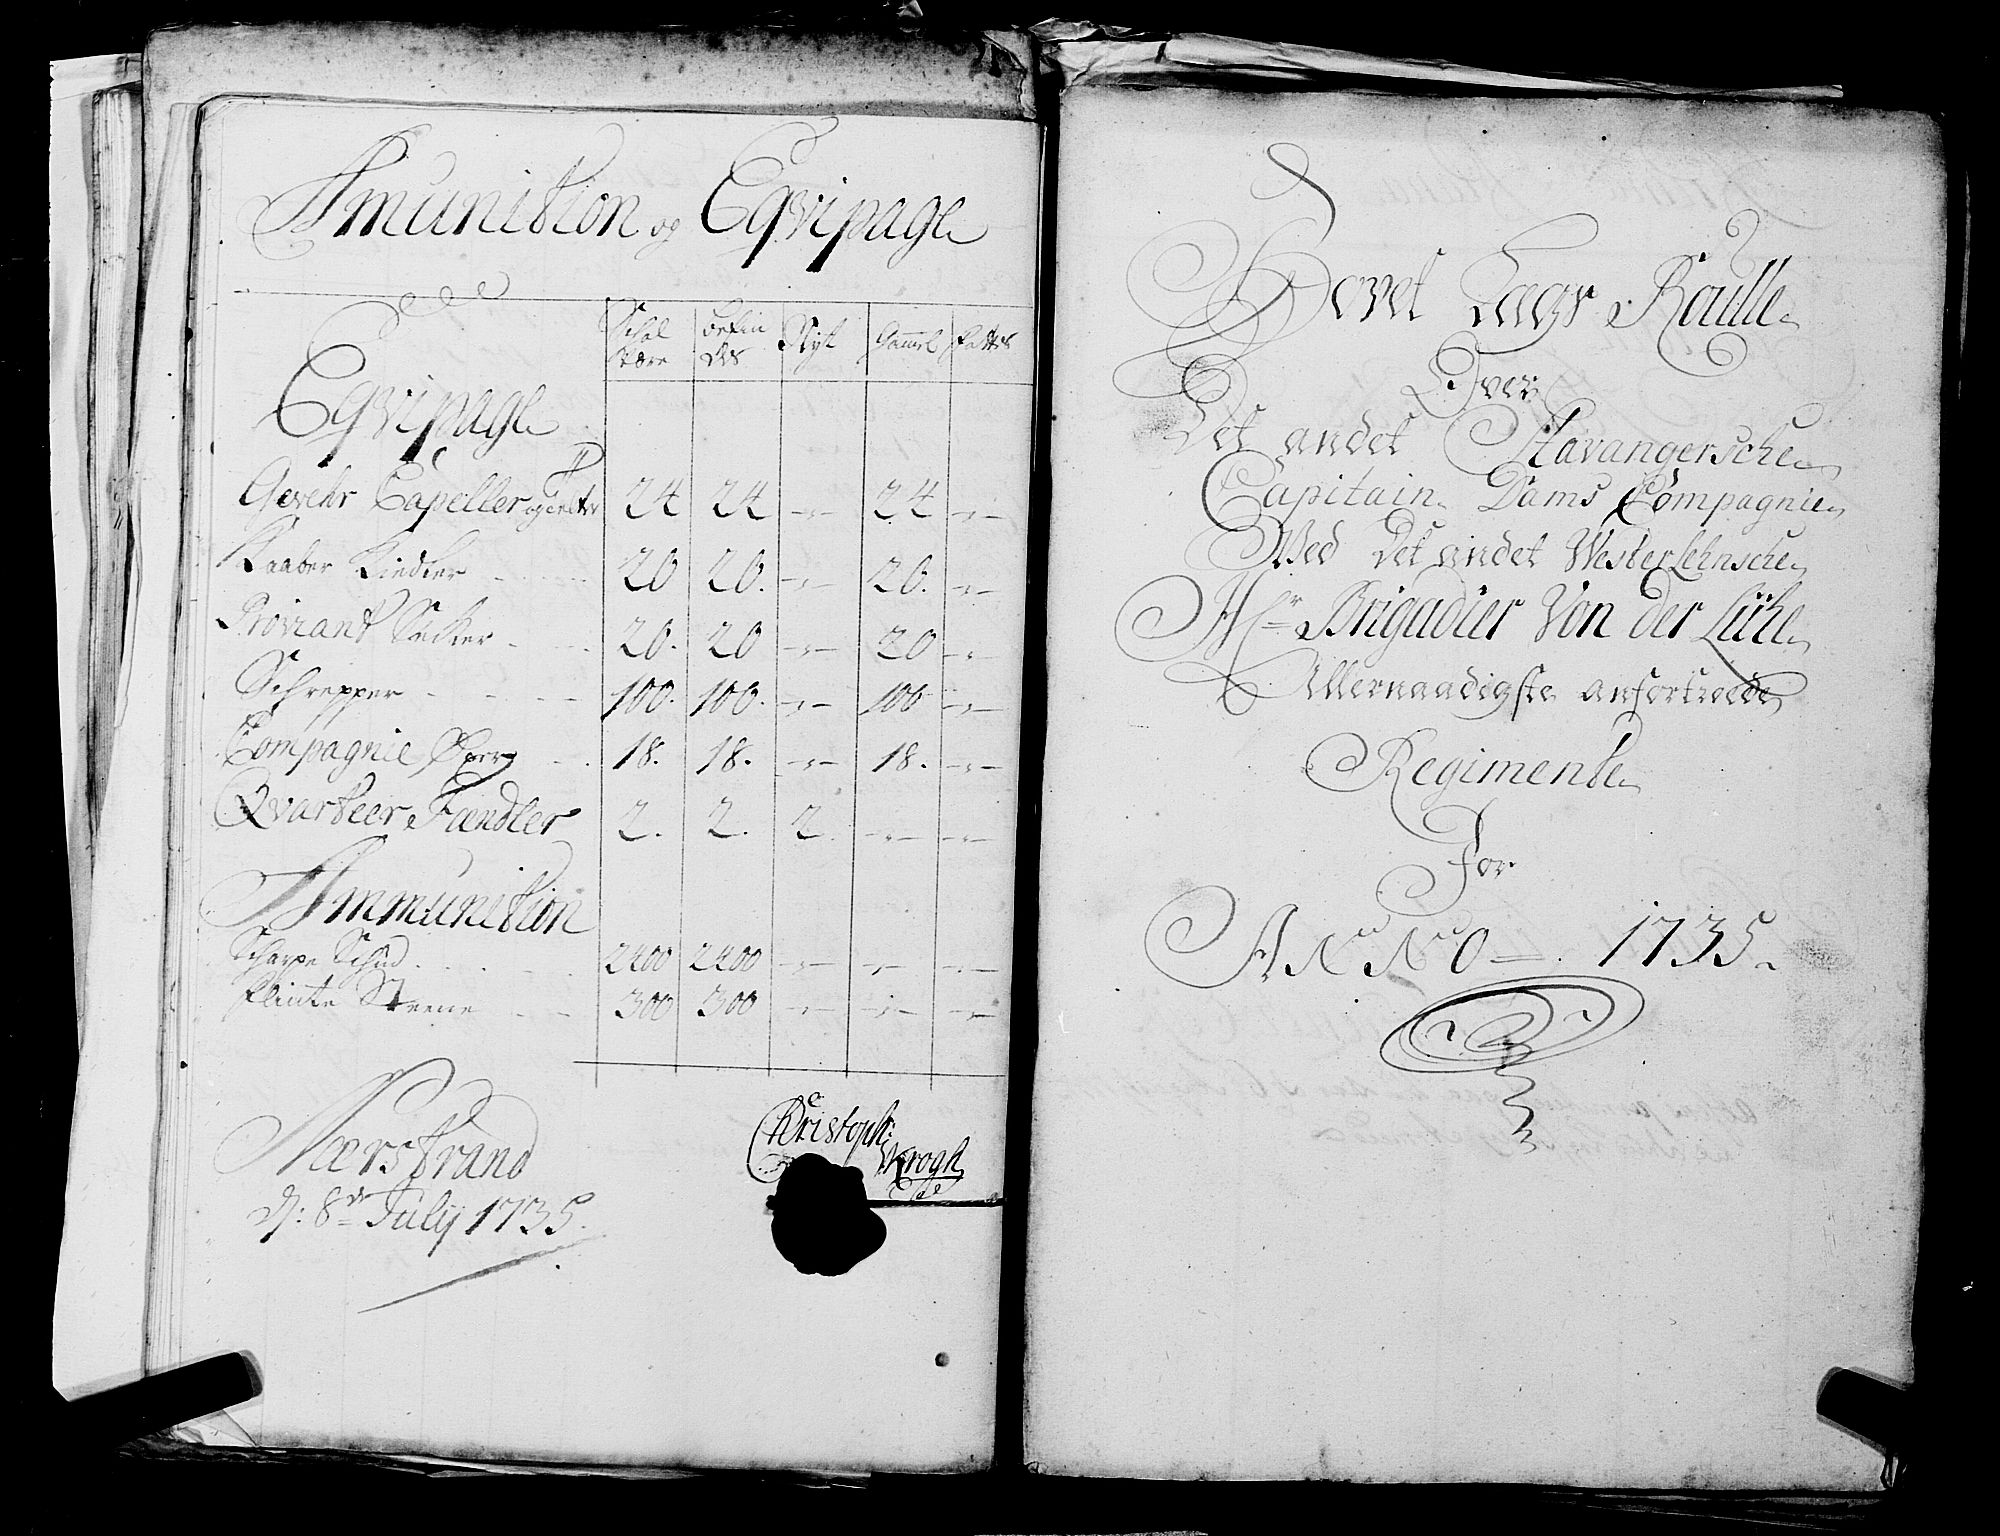 Amunition og Eqvipage
Schal være | befin des | Nyt | Gammel | Fattes
Eqvipage
Gevehr Capeller 24 24 -"- 24 -"-
Kaaber Kiedler 20 20. -"- 20. -"-
Proviant Säcker 20. 20 -"- 20 -"-
Schrepper 100. 100. -"- 100 -"-
Compagnie Øxer 18. 18. -"- 18. -"-
Qvarteer Fændler 2. 2. 2 -"- -"-
Ammunition
Scharpe Schud 2400 2400 -"- -"- -"-
Flinte Steene 300 300 -"- -"- -"-
Nærstrand
d: 8de July 1735.
Christoph:
Krogh
Hovet Lægs Roulle
Over
Det andet Stavangersche
Capitain Dams Compagnie
Ved Det andet Westerlehnsche
Hr Brigadier Von der Lühe
Allernaadigste anfortroede
Regimente
For
ANNO 1735.